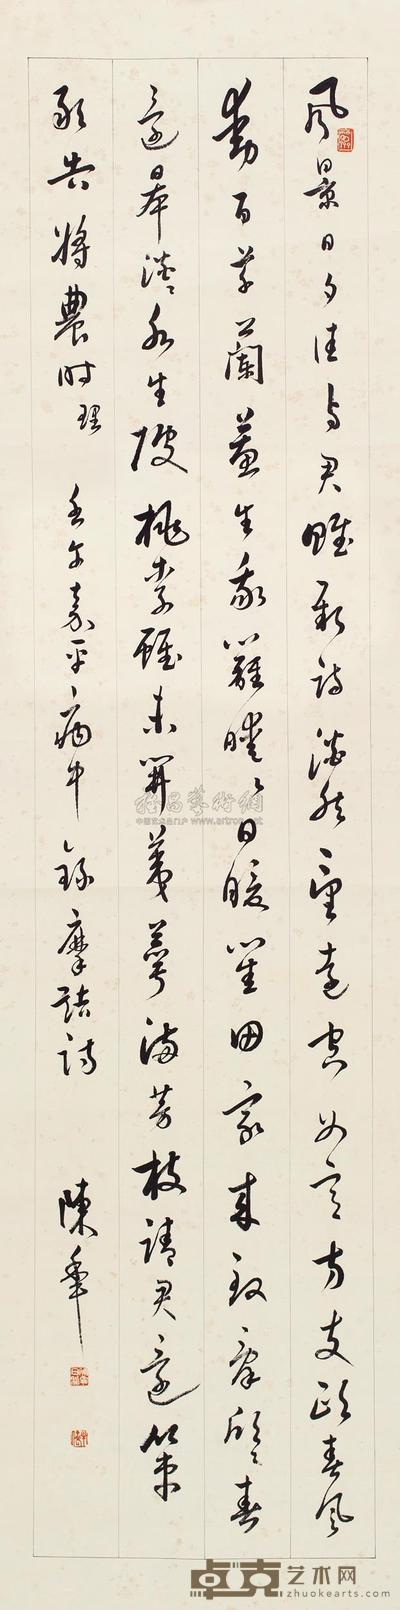 風景日夕佳与君賦新詩澹然望遠空如意方支頤春風
動百草蘭蕙生我籬曖〻日暖閨田家來致詞欣〻春
還皋澹〻水生陂桃李雖未開荑萼滿芳枝請君還策
敢告將農時 理 壬午嘉平病中錄摩詰詩 陳年
雅昌藝術網
www.artron.net
卓克艺术网
www.zhuokearts.com